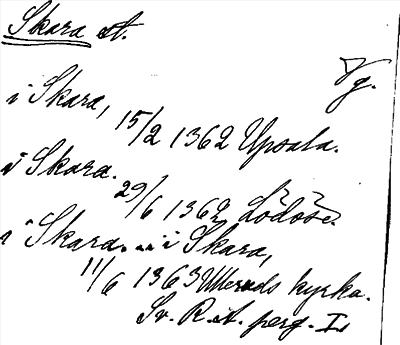 Skara st.
Vg.
i Skara,
15/2 1362 Upsala.
i Skara.
29/6 1362 Lödöse.
i Skara. ... i Skara,
11/6 1363 Ulleruds kyrka.
Sv. R.A. perg. I